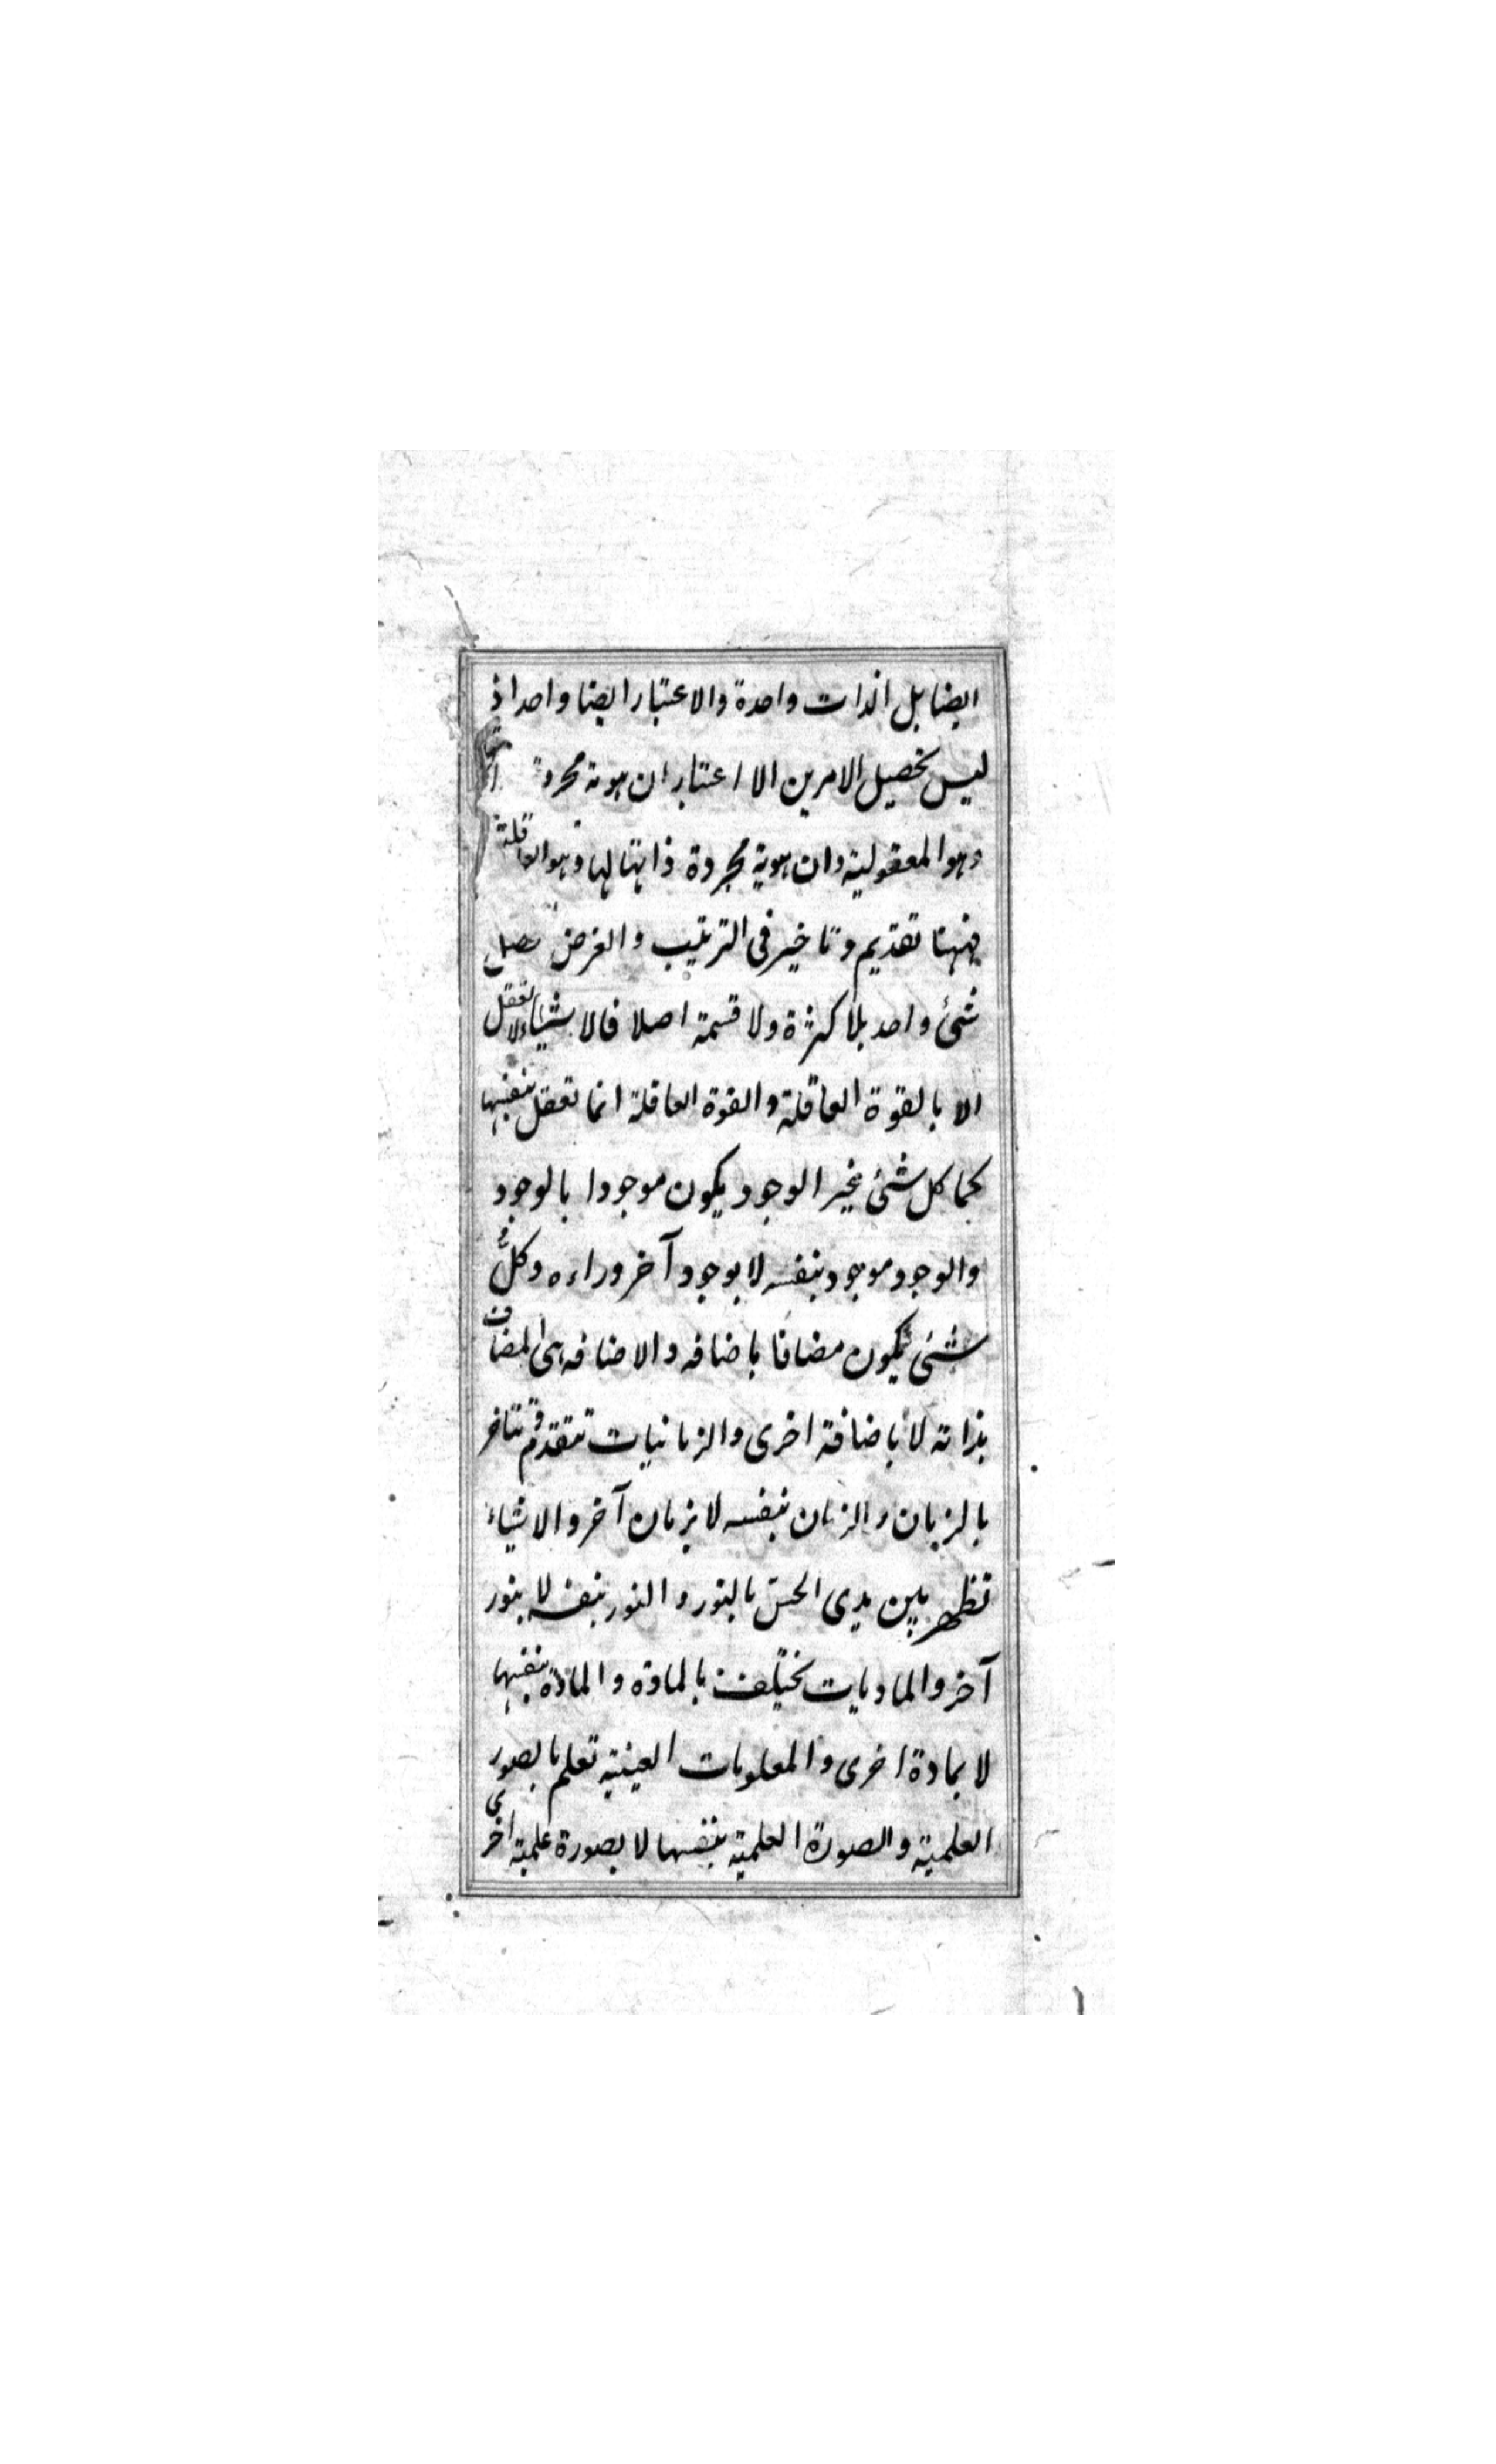 ايضا بل الذات واحدة والاعتبار ايضا واحد اذ
ليس تحصيل الامرين الا اعتبار ان هوية مجردة
وهو المعقولية وان هوية مجردة ذاتها لها وهو العاقلة
فههنا تقديم وتاخير فى الترتيب والغرض
شئ واحد بلا كثرة ولا قسمة اصلا فالاشياء لا تعقل
الا بالقوة العاقلة والقوة العاقلة انما تعقل بنفسها
كما كل شئ غير الوجود يكون موجودا بالوجود
والوجود موجود بنفسه لا بوجود آخر وراءه وكلّ
شئ يكون مضافا باضافه والاضافه هى المضاف
بذاته لا باضافة اخرى والزمانيات تتقدم وتتاخر
بالزمان والزمان بنفسه لا بزمان آخر والاشياء
تظهر بين يدى الحسّ بالنور والنور بنفسه لا بنور
آخر والماديات تختلف بالمادة والمادة بنفسها
لا بمادة اخرى والمعلومات العينية تعلم بالصور
العلمية والصورة العلمية بنفسها لا بصورة علمية اخرى